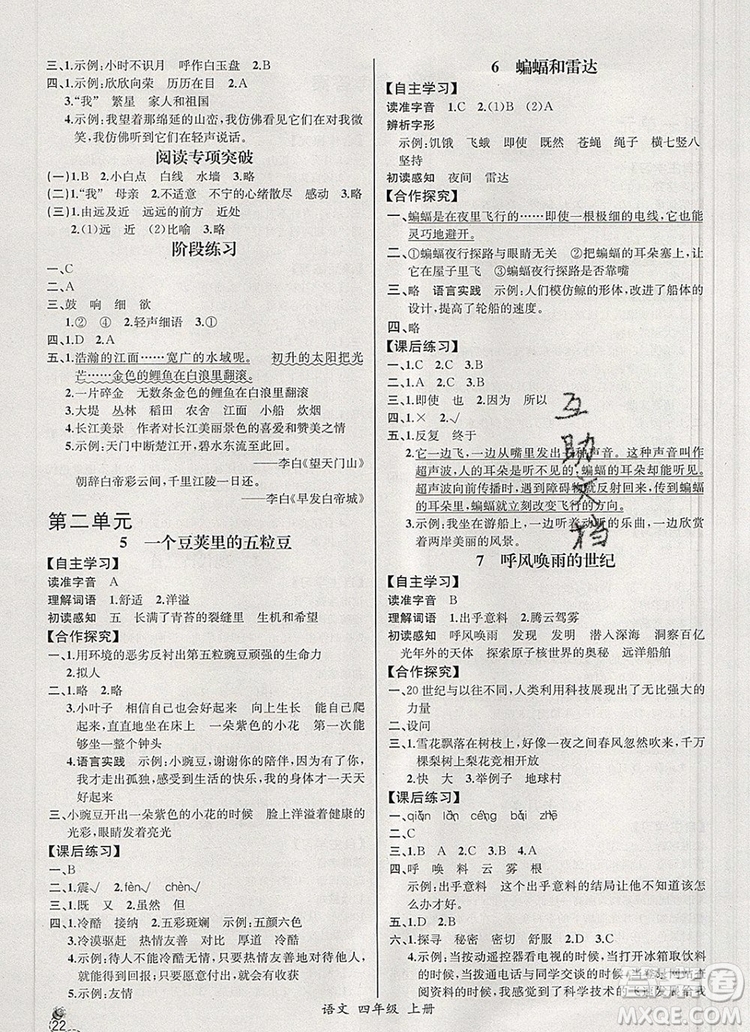 三、1.示例:小时不识月　呼作白玉盘　2.B
四、1.示例:欣欣向荣　历历在目　2.A
3.“我”　繁星　家人和祖国
4.示例:我望着那绵延的山峦,我仿佛看见它们在对我微
笑,我仿佛听见它们在轻声说话。
阅读专项突破
(一)1.C　2.小白点　白线　水墙　3.略
(二)1.“我”　母亲　2.不适意　不宁的心绪散尽　感动　3.略
(三)1.由远及近　远远的前方　近处
2.(1)远　近　(2)比喻　3.略
阶段练习
一、C
二、A
三、鼓　响　细　欲
1.②④　2.轻声细语　3.①
四、1.D　2.A　3.D
五、1.浩瀚的江面……宽广的水域呢。　初升的太阳把光
芒……金色的鲤鱼在白浪里翻滚。
2.一片碎金　无数条金色的鲤鱼在白浪里翻滚
3.大堤　丛林　稻田　农舍　江面　小船　炊烟
4.长江美景　作者对长江美景的喜爱和赞美之情
5.示例:天门中断楚江开,碧水东流至此回。
——李白《望天门山》
朝辞白帝彩云间,千里江陵一日还。
——李白《早发白帝城》
第二单元
5　一个豆荚里的五粒豆
【自主学习】
读准字音　A
理解词语　1.舒适　2.洋溢
初读感知　五　长满了青苔的裂缝里　生机和希望
【合作探究】
一、1.用环境的恶劣反衬出第五粒豌豆顽强的生命力
2.拟人
二、1.略　2.略
3.小叶子　相信自己会好起来　向上生长　能自己爬
起来　直直地坐在床上　一朵紫色的小花　坐了整
整一个钟头
4.语言实践　示例:小豌豆,谢谢你的陪伴,因为你,我
走出了孤独,感受到了生活的快乐,我长大后也要像
你一样把快乐带给别人。
三、小豌豆开出一朵紫色的小花的时候　脸上洋溢着健康的
光彩,眼睛发着亮光
【课后练习】
一、B
二、1.震╱　2.fèn╱　chèn╱
三、1.即　2.既　又　3.虽然　但
四、1.冷酷　接纳　2.五彩斑斓　示例:五颜六色
3.冷漠驱赶　热情友善　对比　严寒　冷酷　热情友善
4.示例:热情友善待人,才能使自己得到快乐,使世界
充满温暖。
5.示例:友情
6　蝙蝠和雷达
【自主学习】
读准字音　1.C　2.(1)B　(2)A
辨析字形
示例:饥饿　飞蛾　即使　既然　苍蝇　绳子　横七竖八
坚持
初读感知　夜间　雷达
【合作探究】
一、1.蝙蝠是在夜里飞行的……即使一根极细的电线,它也能
灵巧地避开。
二、①蝙蝠夜行探路与眼睛无关　②把蝙蝠的耳朵塞上,让
它在屋子里飞　③蝙蝠夜行探路是否靠嘴
三、略　语言实践　示例:人们模仿鲸的形体,改进了船体的
设计,提高了轮船的速度。
四、略
【课后练习】
一、1.B　2.C　3.B
二、A
三、1.即使　也　2.因为　所以
四、1.×　2.√
五、1.反复　终于
2.它一边飞,一边从嘴里发出一种声音。这种声音叫作
超声波,人的耳朵是听不见的,蝙蝠的耳朵却能听见。
超声波向前传播时,遇到障碍物就反射回来,传到蝙
蝠的耳朵里,蝙蝠就立刻改变飞行的方向。
3.示例:我坐在游船上,一边听着动听的乐曲,一边欣
赏着两岸美丽的风景。
7　呼风唤雨的世纪
【自主学习】
读准字音　B
理解词语　1.出乎意料　2.腾云驾雾
初读感知　呼风唤雨　发现　发明　潜入深海　洞察百亿
光年外的天体　探索原子核世界的奥秘　远洋船舶
【合作探究】
一、20世纪与以往不同,人类利用科技展现了无比强大的
力量
二、设问
三、1.雪花飘落在树枝上,好像一夜之间春风忽然吹开了千
棵梨树上的梨花一般
2.快　大　3.举例子　地球村
【课后练习】
一、qiǎn　lǎn　céng　bǎi　zhē
二、C
三、1.B　A　C　2.A　B　C
四、呼　唤　料　云　雾　根
示例:出乎意料　这件事的结局让他出乎意料,不知怎
么办才好。
五、1.√　2.×　3.×
六、1.探寻　秘密　密切　舒服　2.C　3.B
4.示例:当按动遥控器看电视的时候,当打开冰箱取饮料
时,当拨通电话与同学交谈的时候,当打开网页查
阅资料的时候,我感受到了科学技术的发展与进步
互助文档
语文　四年级　上册
22